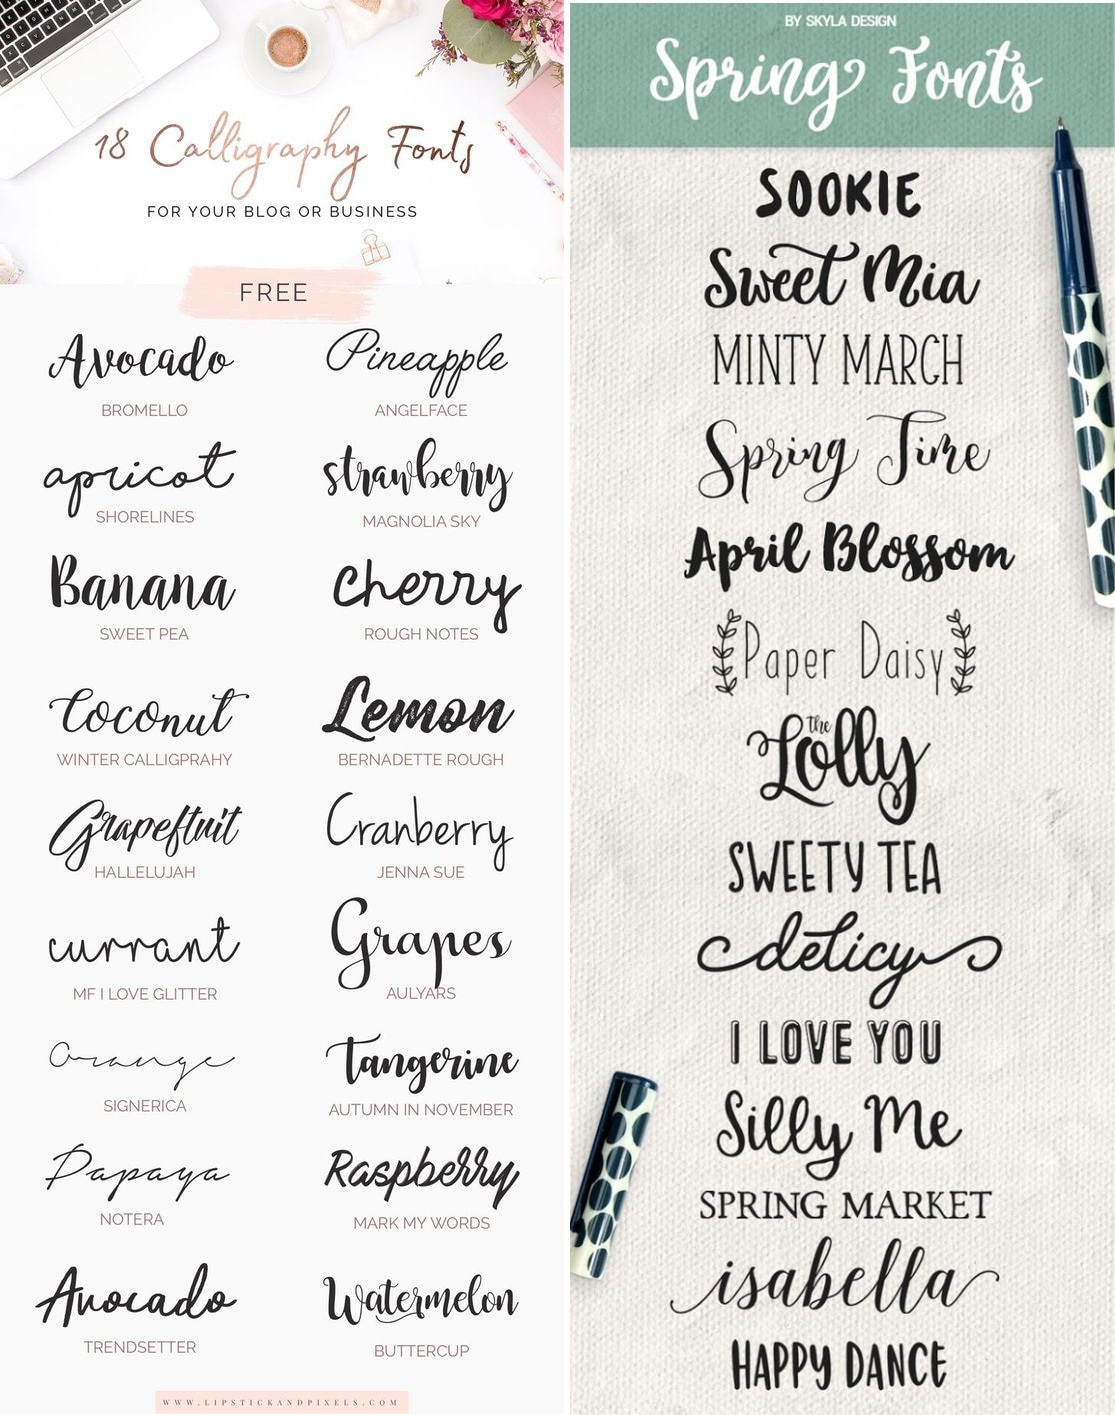 18 Calligraphy Fonts
FOR YOUR BLOG OR BUSINESS
FREE
Avocado
BROMELLO
Pineapple
ANGELFACE
apricot
SHORELINES
strawberry
MAGNOLIA SKY
Banana
SWEET PEA
Cherry
ROUGH NOTES
Coconut
WINTER CALLIGPRAHY
Lemon
BERNADETTE ROUGH
Grapeftuit
HALLELUJAH
Cranberry
JENNA SUE
currant
MF I LOVE GLITTER
Grapes
AULYARS
Orange
SIGNERICA
Tangerine
AUTUMN IN NOVEMBER
Papaya
NOTERA
Raspberry
MARK MY WORDS
Avocado
TRENDSETTER
Watermelon
BUTTERCUP
WWW.LIPSTICKANDPIXELS.COM
BY SKYLA DESIGN
Spring Fonts
SOOKIE
Sweet Mia
MINTY MARCH
Spring Time
April Blossom
Paper Daisy
the
Lolly
SWEETY TEA
delicy
I LOVE YOU
Silly Me
SPRING MARKET
isabella
HAPPY DANCE